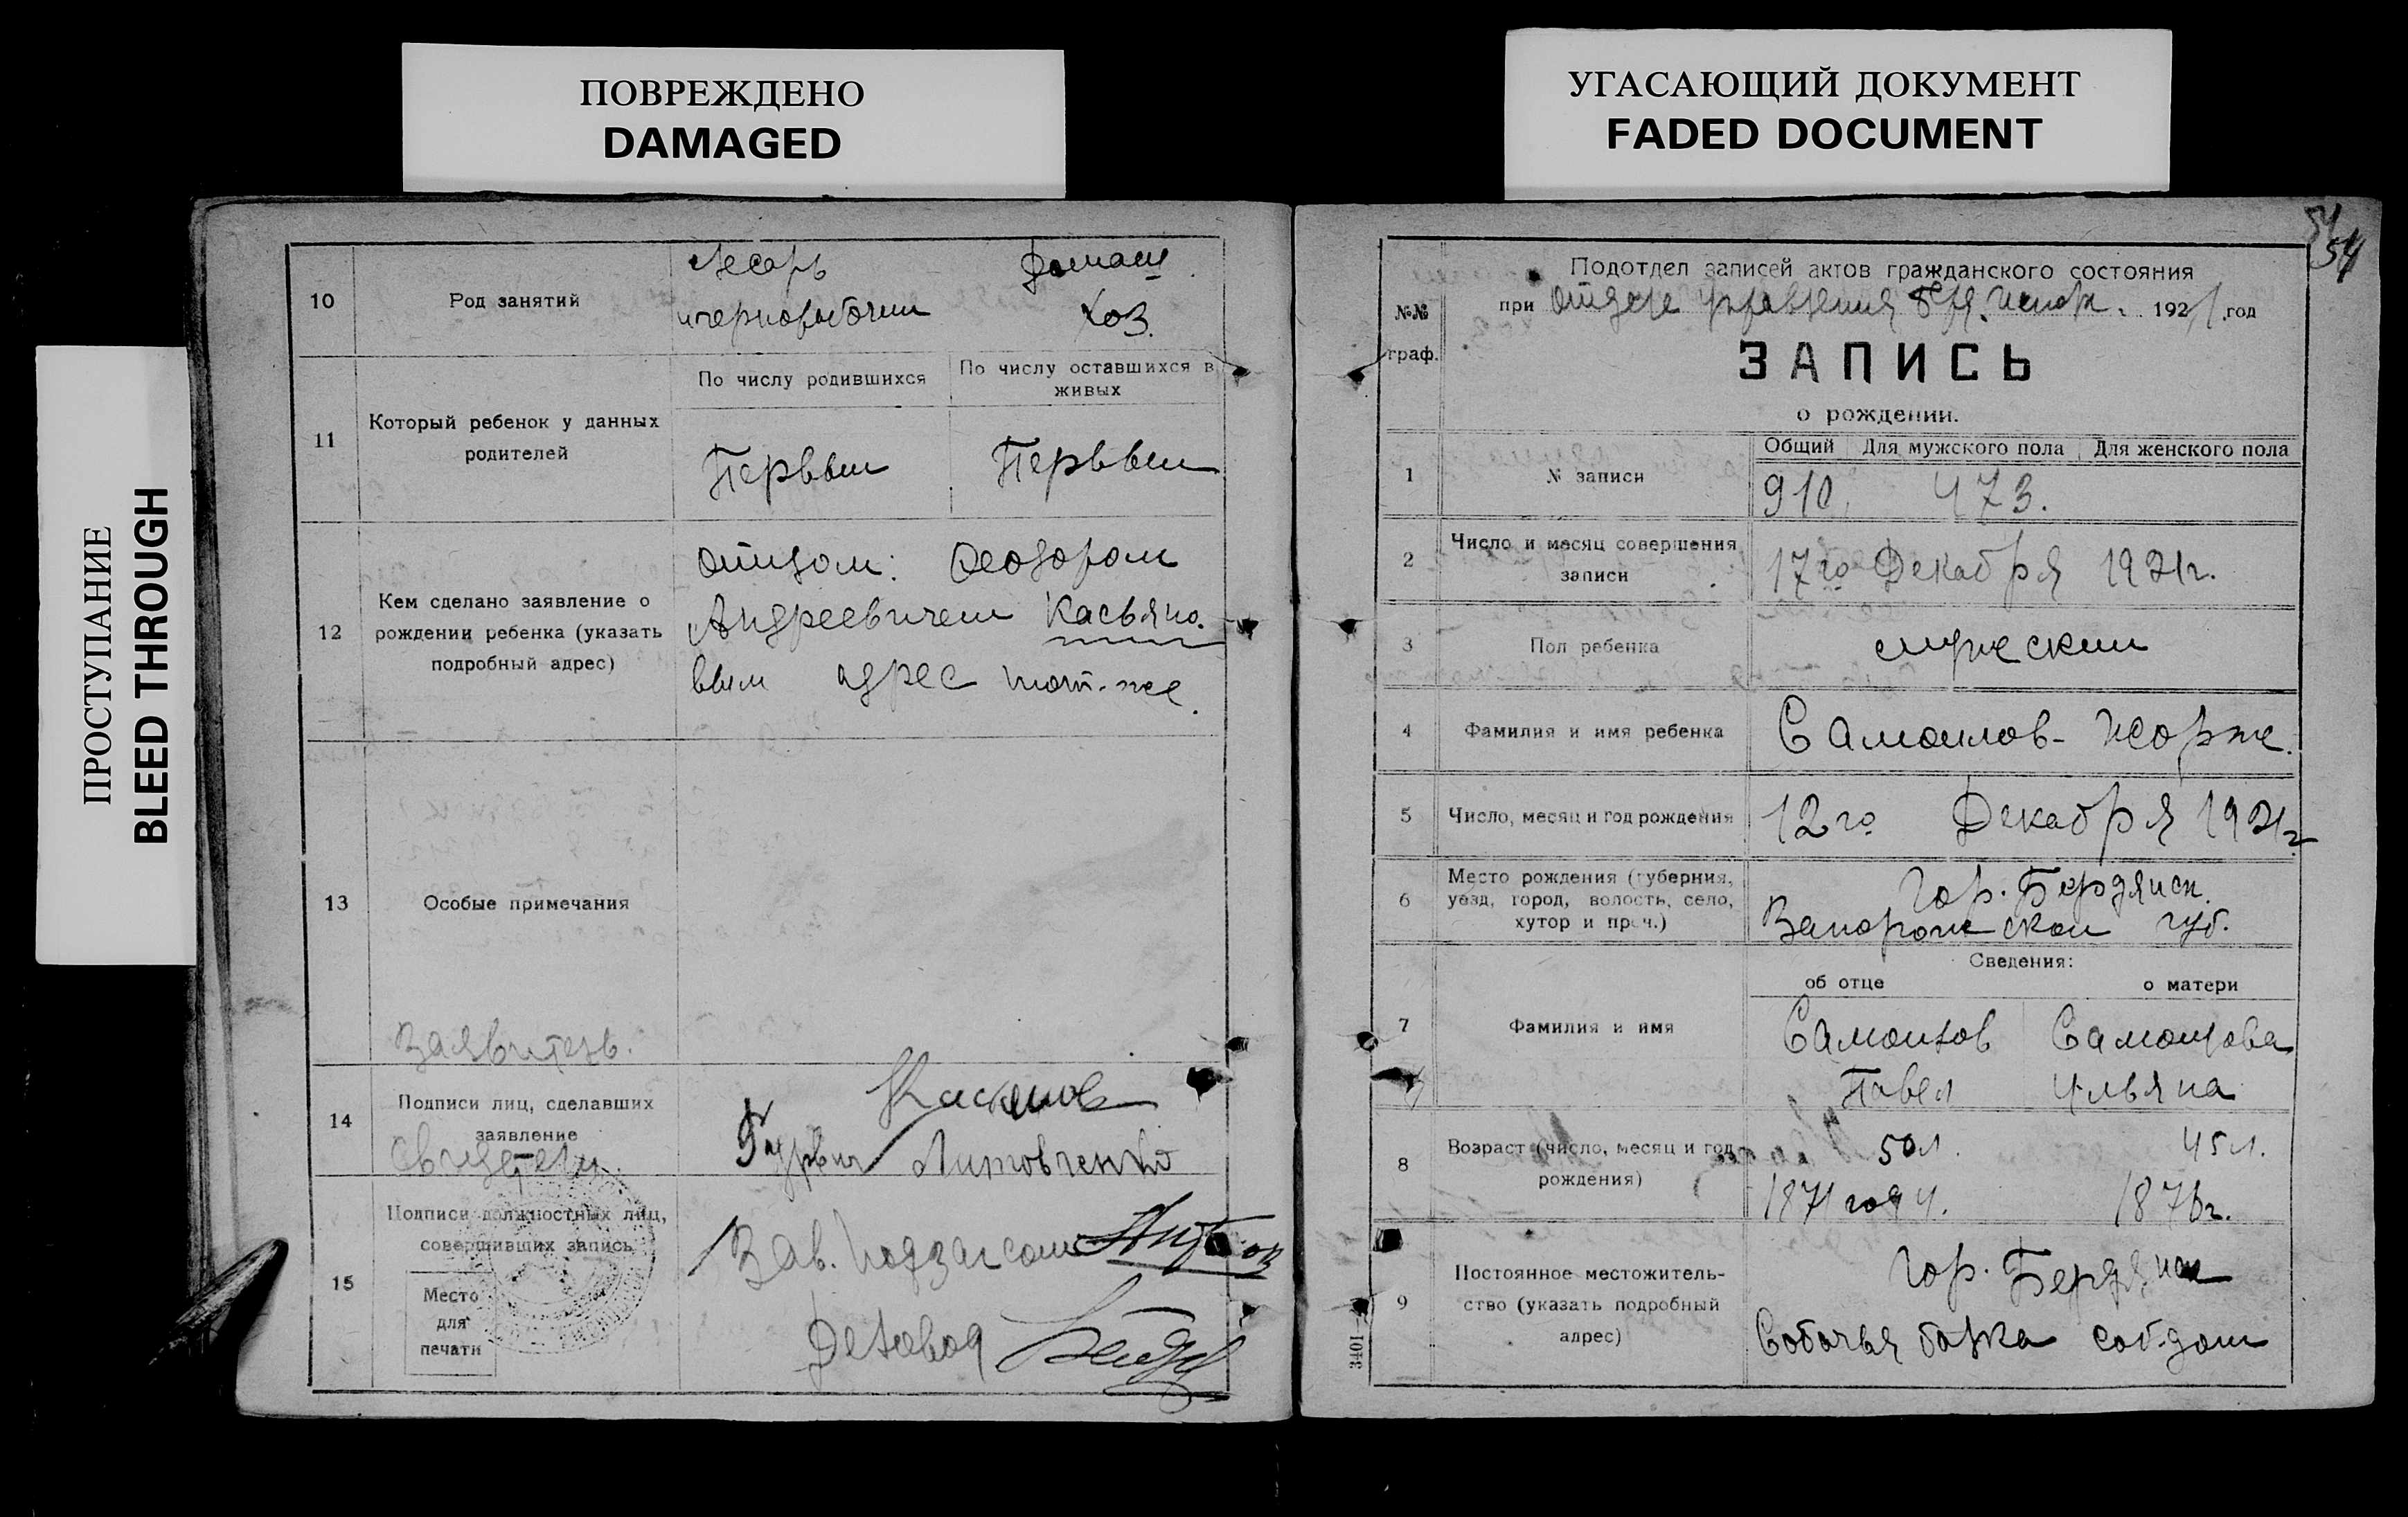 ПОВРЕЖДЕНО
DAMAGED
УГАСАЮЩИЙ ДОКУМЕНТ
FADED DOCUMENT
ПРОСТУПАНИЕ
BLEED THROUGH
10
Род занятий
слесарь
чернорабочий
домаш.
хоз.
11
Который ребенок у данных
родителей
По числу родившихся
По числу оставшихся в
живых
Первый
Первый
12
Кем сделано заявление о
рождении ребенка (указать
подробный адрес)
отцом: Феодором
Андреевичем Касьяно-
вым адрес тот-же.
13
Особые примечания
Заявитель.
14
Подписи лиц, сделавших
заявление
Свидетели.
Касьянов
Гурвич Литовченко
15
Подписи должностных лиц,
совершивших запись
Место
для
печати
Зав. подзагсом
Деловод
54
№№
граф.
Подотдел записей актов гражданского состояния
при отделе управления Бер. исполк. 1921 год
ЗАПИСЬ
о рождении.
1
№ записи
Общий Для мужского пола Для женского пола
910 473.
2
Число и месяц совершения
записи
17го Декабря 1921г.
3
Пол ребенка
мужеский
4
Фамилия и имя ребенка
Самойлов- Жорже.
5
Число, месяц и год рождения
12го Декабря 1921г
6
Место рождения (губерния,
уезд, город, волость, село,
хутор и проч.)
Гор. Бердянск.
Запорожской губ.
Сведения:
об отце
о матери
7
Фамилия и имя
Самойлов
Павел
Самойлова
Ульяна
8
Возраст (число, месяц и год
рождения)
50 л.
1871 году.
45 л.
1876г.
9
Постоянное местожитель-
ство (указать подробный
адрес)
Гор. Бердянск
Собачья балка соб. дом
3401